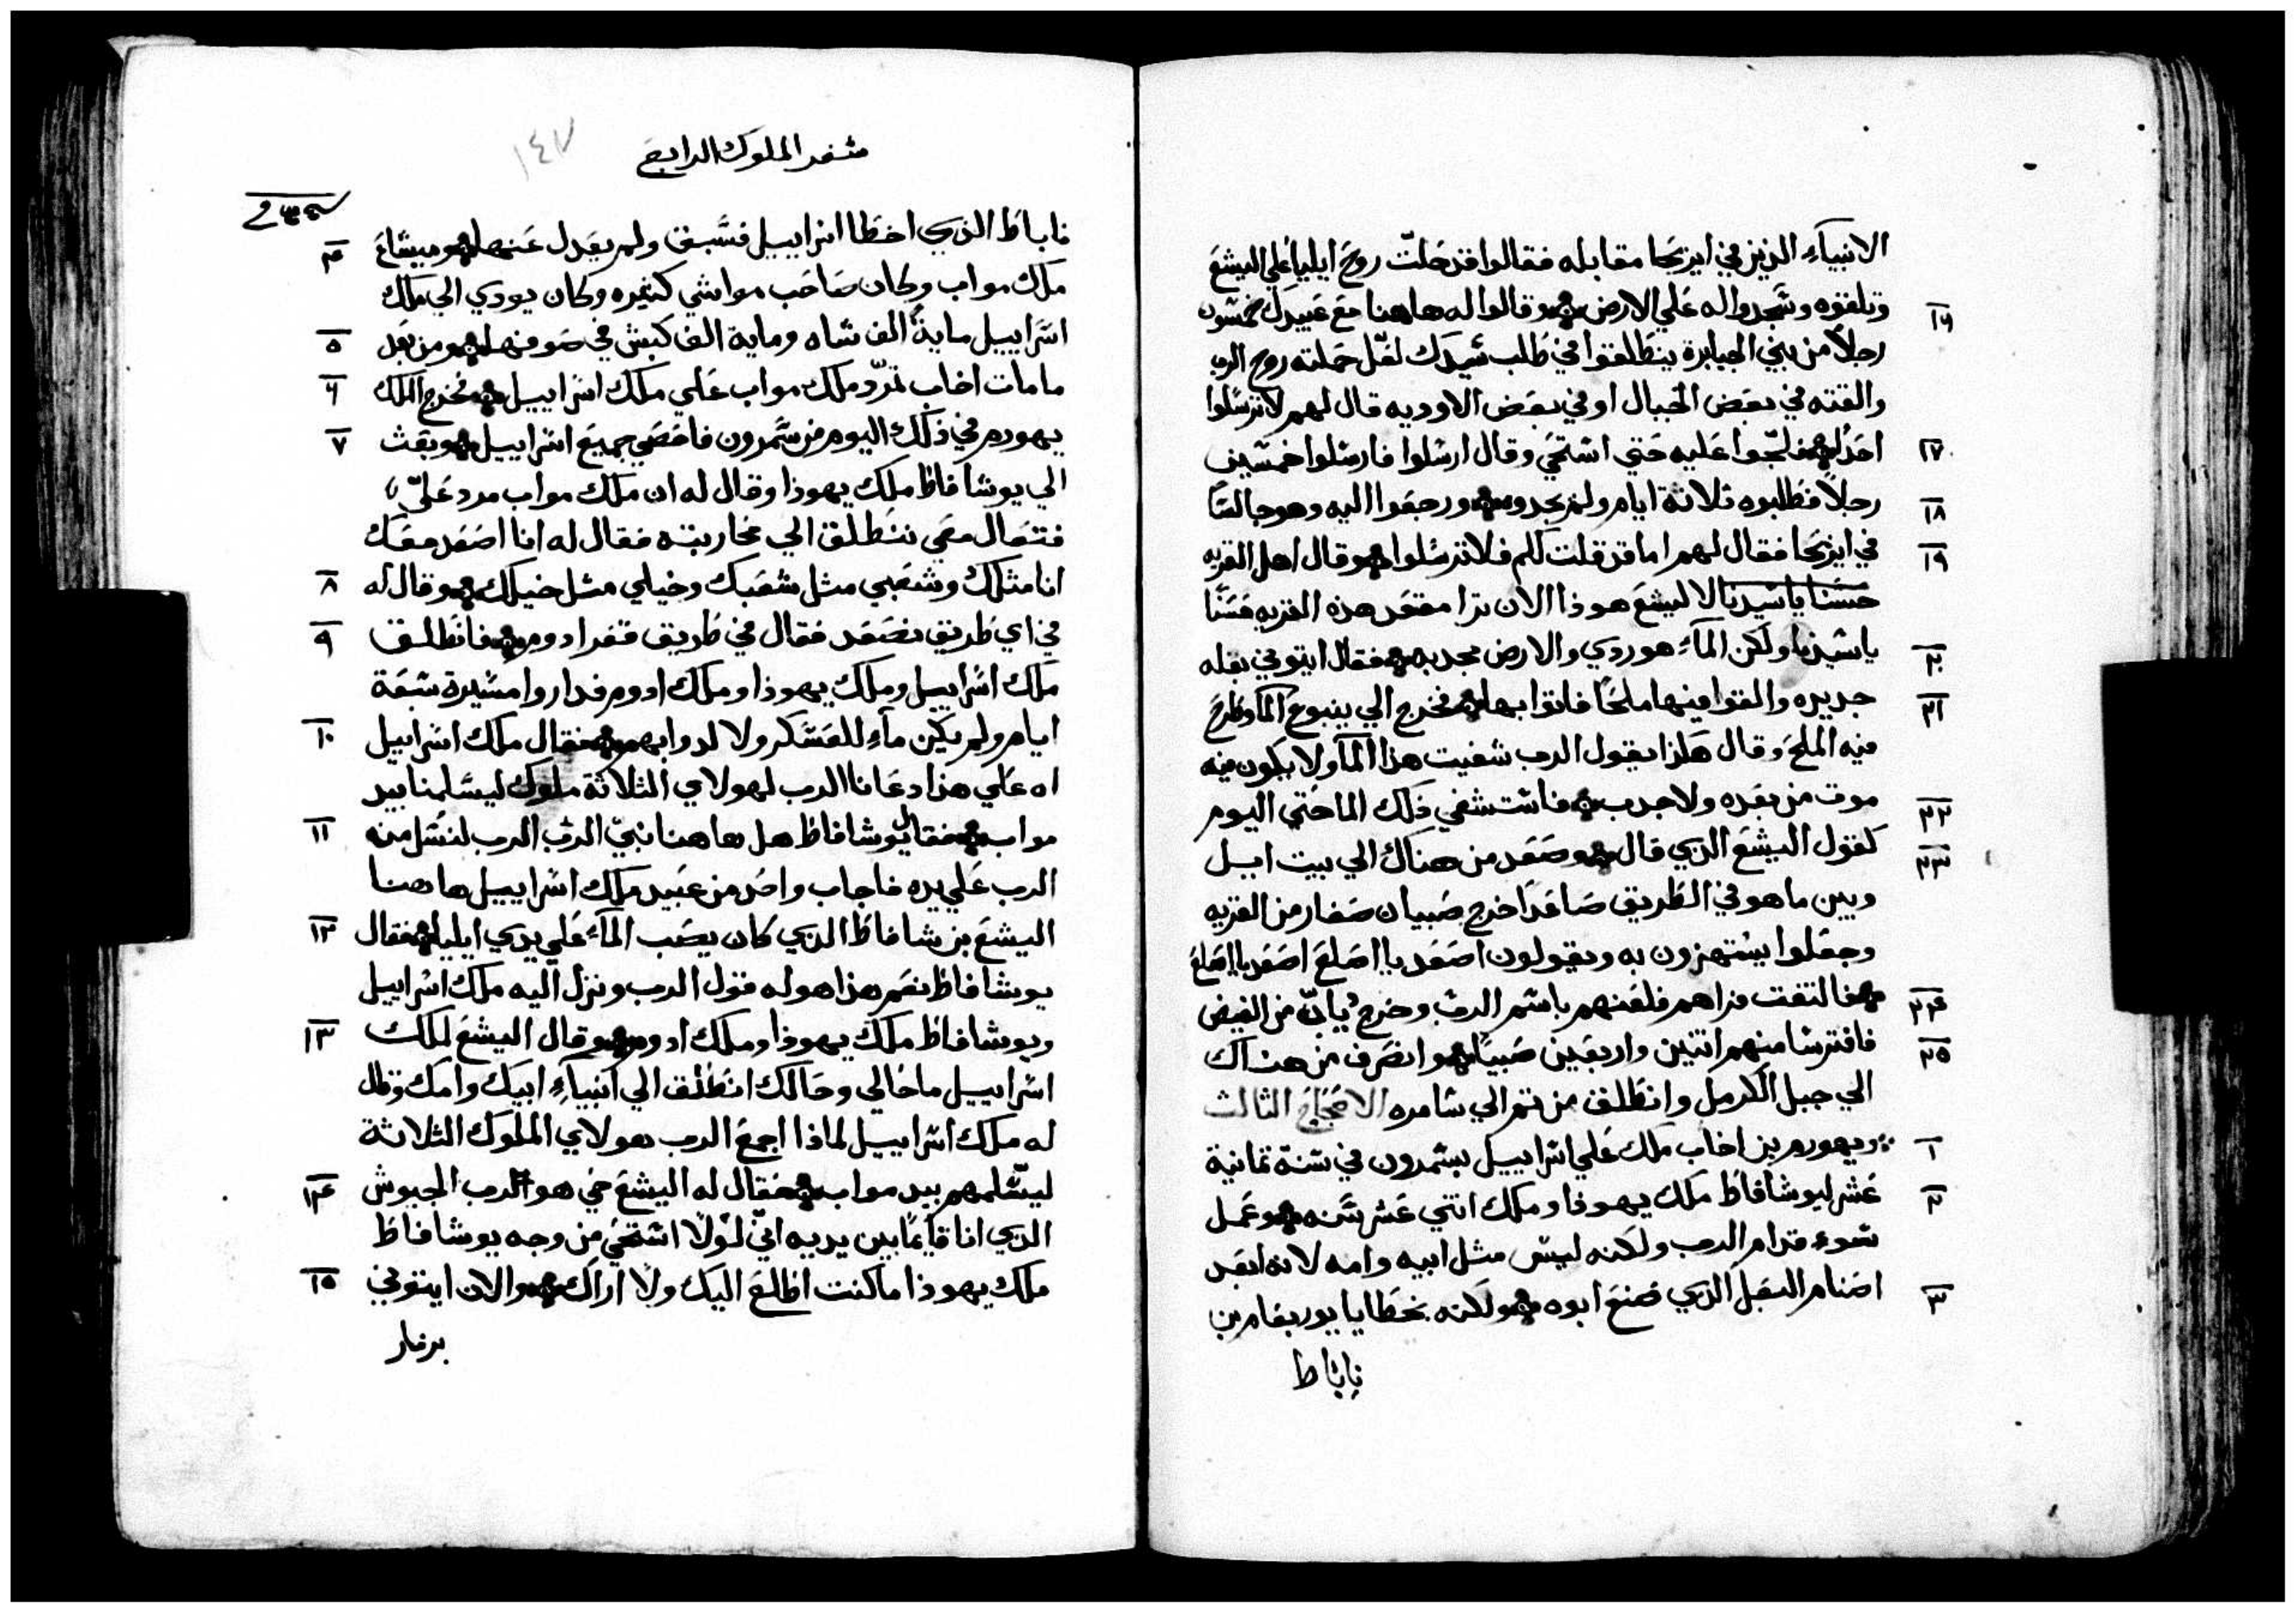 الانبياء الذين في ايريحا مقابله فقالوا قد حلت روح ايليا علي اليشع
١٦ وتلقوه وسجدوا له علي الارض وقالوا له هاهنا مع عبيدك خمسون
رجلاً من بني الجبابرة ينطلقوا في طلب سيدك لعل حملته روح الرب
والقته في بعض الجبال او في بعض الاوديه قال لهم لا ترسلوا
١٧ احداً فلجوا عليه حتي استحي وقال ارسلوا فارسلوا خمسين
١٨ رجلاً فطلبوه ثلاثة ايام ولم يجدوه ورجعوا اليه وهو جالساً
١٩ في ايريحا فقال لهم اما قد قلت لكم فلا ترسلوا وقال اهل القريه
حسنا يا سيدنا لاليشع هوذا الان ترا مقعد هذه القريه حسناً
٢٠ يا سيدنا ولكن الماء هو ردي والارض مجدبه فقال ايتوني بقله
٢١ جديده والقوا فيها ملحاً فاتوا بها فخرج الي ينبوع الماء وطرح
فيه الملح وقال هكذا يقول الرب شفيت هذا الماء ولا يكون فيه
٢٢ موت من بعده ولا جدب فاستشفي ذلك الما حتي اليوم
٢٣ كقول اليشع الذي قال وصعد من هناك الي بيت ايل
وبين ما هو في الطريق صاعداً خرج صبيان صغار من القريه
وجعلوا يستهزون به ويقولون اصعد يا اصلع اصعد يا اصلع
٢٤ فالتفت فراهم فلعنهم باسم الرب وخرج دبابّ من الغيض
٢٥ فافترسا منهم اتنين واربعين صبياً وانصرف من هناك
الي جبل الكرمل وانطلق من تم الي سامره الاصحاح الثالث
١ ويهورم بن اخاب ملك علي اسراييل بسمرون في سنة تمانية
٢ عشر ليوشافاظ ملك يهوذا وملك اتني عشر سنه وعمل
سوء قدام الرب ولكنه ليس مثل ابيه وامه لانه ابعد
٣ اصنام البعل الذي صنع ابوه ولكنه بخطايا يوربعام بن
ناباط
سفر الملوك الرابع
١٤٧
ناباط الذي اخطا اسراييل فسبق ولم يعدل عنها
٤ وميشاع
ملك مواب وكان صاحب مواشي كثيره وكان يودي الي ملك
٥ اسراييل ماية الف شاه وماية الف كبش في صوفها ومن بعد
٦ ما مات اخاب تمرّد ملك مواب علي ملك اسراييل فخرج الملك
٧ يهورم في ذلك اليوم من سمرون فاحصي جميع اسراييل وبعث
الي يوشافاظ ملك يهوذا وقال له ان ملك مواب مرد عليّ
فتعال معي ننطلق الي محاربته فقال له انا اصعد معك
٨ انا مثلك وشعبي مثل شعبك وخيلي مثل خيلك وقال له
٩ في اي طريق نصعد فقال في طريق قفر ادوم فانطلق
ملك اسراييل وملك يهوذا وملك ادوم فداروا مسيرة سبعة
١٠ ايام ولم يكن ماء للعسكر ولا لدوابهم فقال ملك اسراييل
اه علي هذا دعانا الرب لهولاي الثلاثة ملوك ليسلمنا بيد
١١ مواب فقال يوشافاظ هل هاهنا نبيّ الرب الرب لنسل منه
الرب علي يده فاجاب واحد من عبيد ملك اسراييل هاهنا
١٢ اليشع بن شافاظ الذي كان يصب الماء علي يدي ايليا فقال
يوشافاظ نعم هذا هو له قول الرب ونزل اليه ملك اسراييل
١٣ ويوشافاظ ملك يهوذا وملك ادوم وقال اليشع لملك
اسراييل ما خالي وحالك انطلق الي انبياء ابيك وامك وقال
له ملك اسراييل لماذا اجمع الرب هولاي الملوك الثلاثة
١٤ ليسلمهم بيد مواب فقال له اليشع حي هو الرب الجيوش
الذي انا قايماً بين يديه انّي لولا استحي من وجه يوشافاظ
١٥ ملك يهوذا ما كنت اطلع اليك ولا اراك والان ايتوني
بزمار